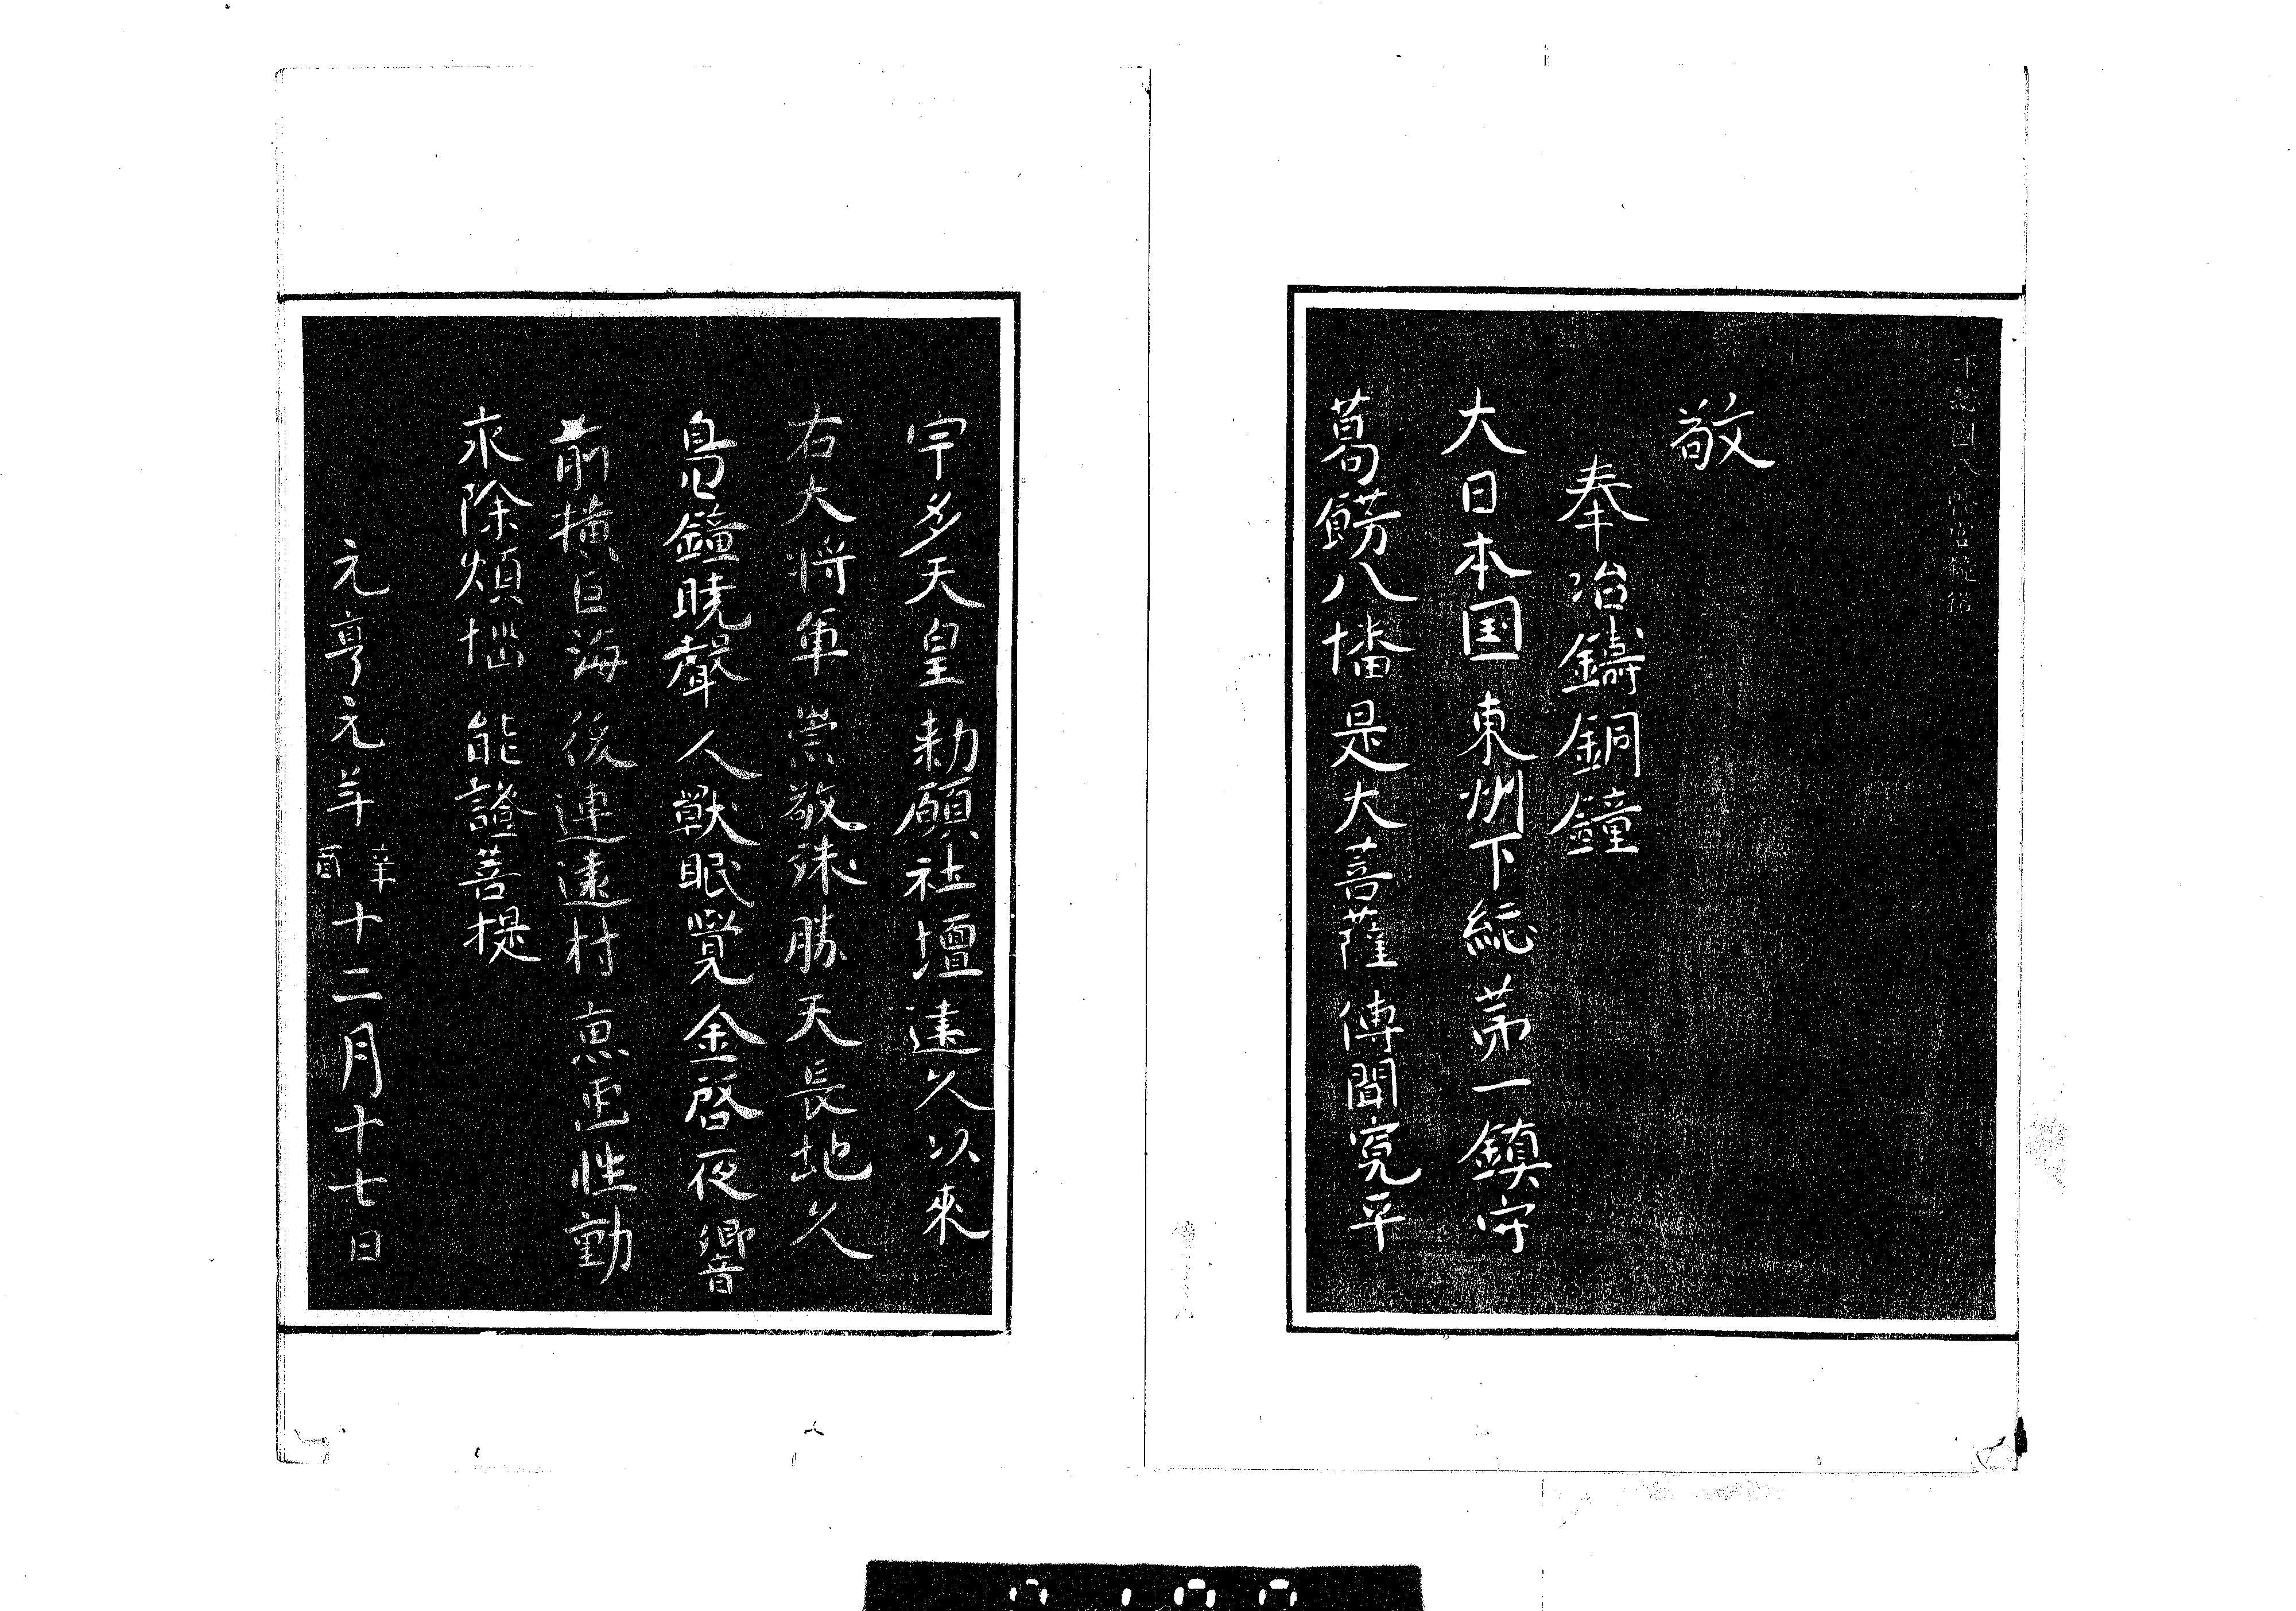 下総國八幡宮鐘銘
敬
奉冶鑄銅鐘
大日本国東州下総第一鎮守
葛餝八幡是大菩薩傳聞寛平
宇多天皇勅願社壇建久以來
右大将軍崇敬殊勝天長地久
鳧鐘暁聲人獣眠覺金啓夜響
前横巨海後連遠村魚虫性動
永除煩悩能證菩提
元亨元年辛酉十二月十七日